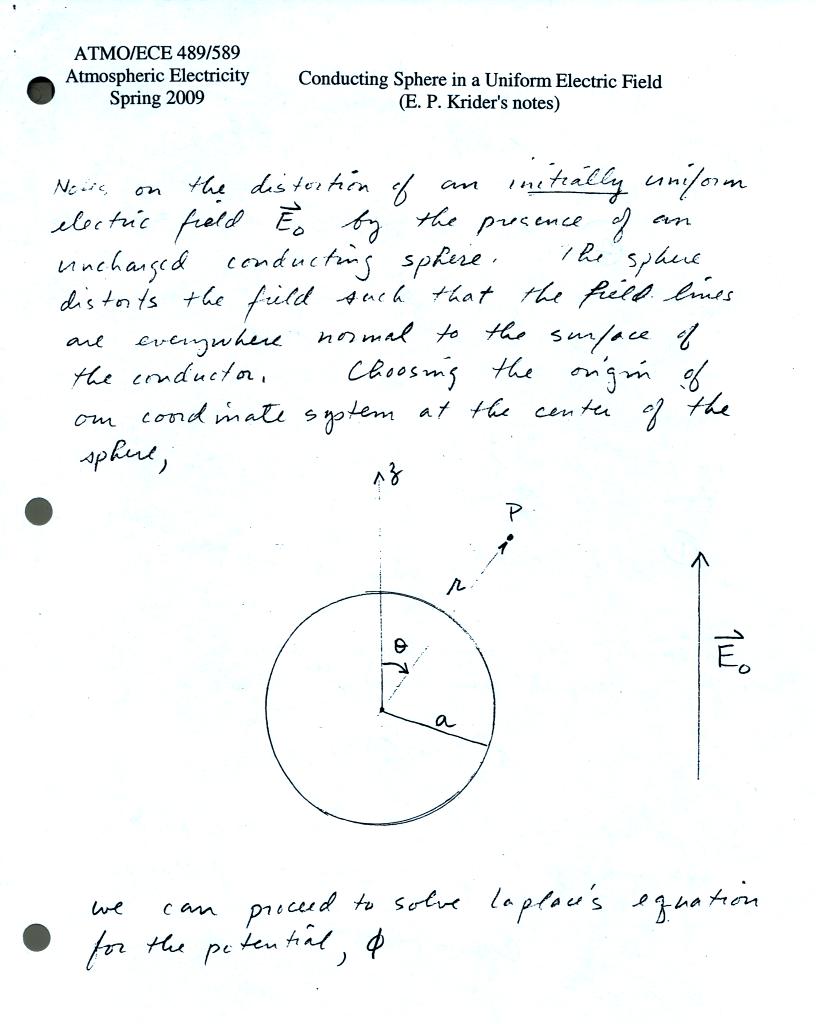 ATMO/ECE 489/589
Atmospheric Electricity
Spring 2009
Conducting Sphere in a Uniform Electric Field
(E. P. Krider's notes)
on the distortion of an initially uniform
electric field E₀ by the presence of an
uncharged conducting sphere. The sphere
distorts the field such that the field lines
are everywhere normal to the surface of
the conductor. Choosing the origin of
our coordinate system at the center of the
sphere,
z
P
r
θ
E₀
a
we can proceed to solve Laplace's equation
for the potential, ϕ